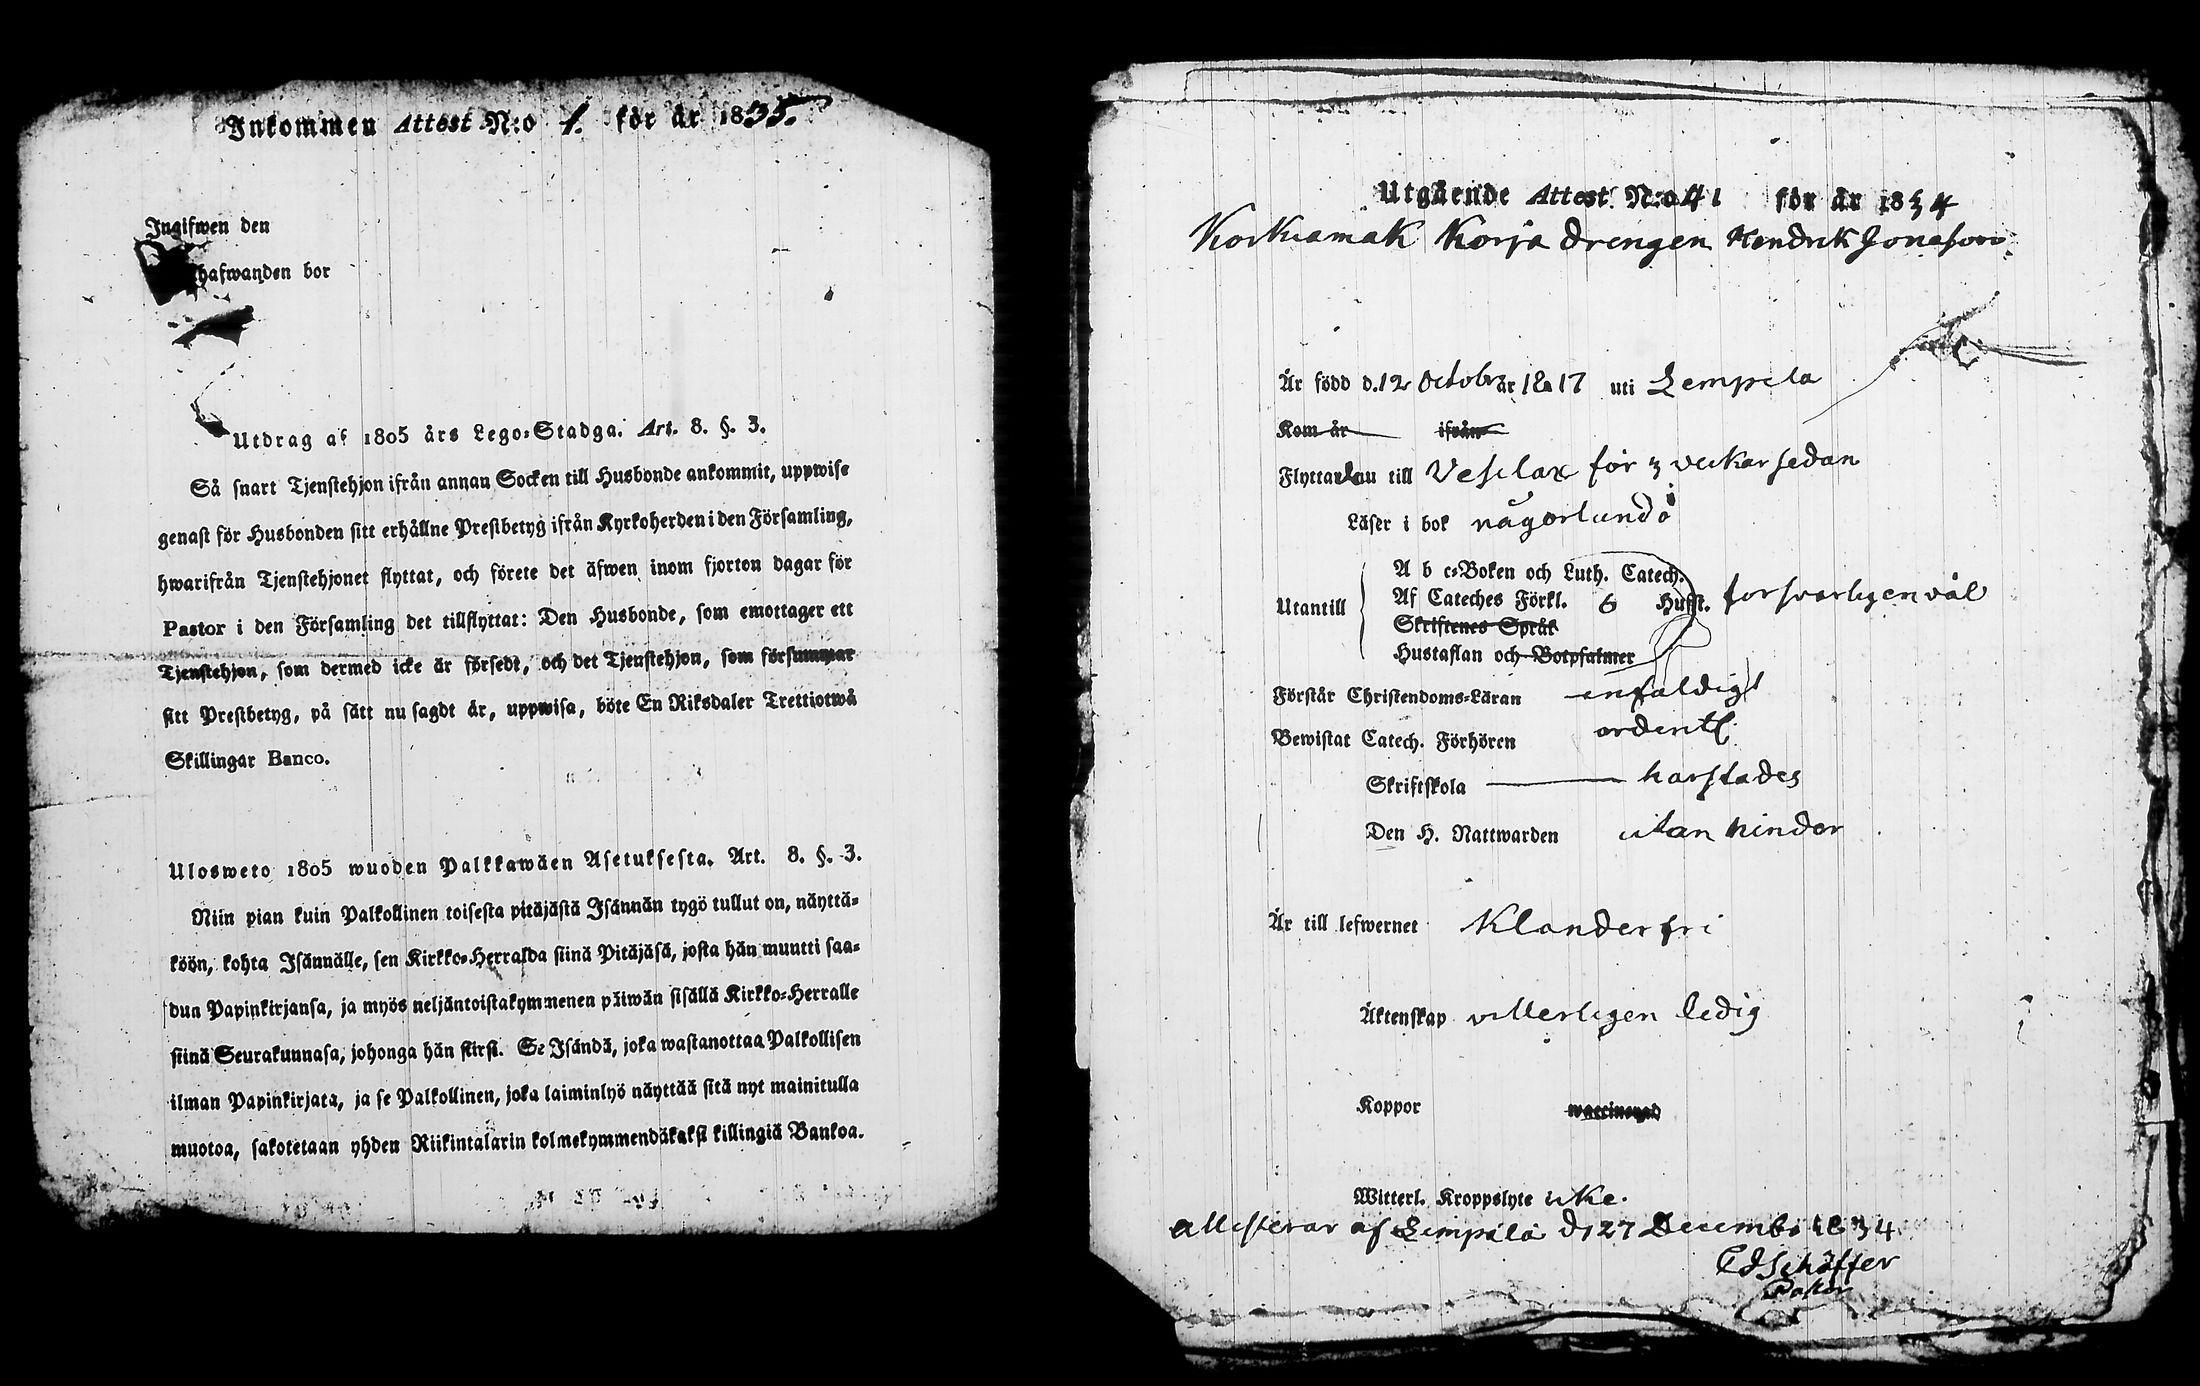 Inkommen Attest N:o 1. för år 1835.
Ingifwen den
hafwanden bor
Utdrag af 1805 års Lego-Stadga. Art. 8. §. 3.
Så snart Tjenstehjon ifrån annan Socken till Husbonde ankommit, uppwise
genast för Husbonden sitt erhållne Prestbetyg ifrån Kyrkoherden i den Församling,
hwarifrån Tjenstehjonet flyttat, och förete det äfwen inom fjorton dagar för
Pastor i den Församling det tillflyttat: Den Husbonde, som emottager ett
Tjenstehjon, som dermed icke är försedt, och det Tjenstehjon, som försummar
sitt Prestbetyg, på sätt nu sagdt är, uppwisa, böte En Riksdaler Trettiotwå
Skillingar Banco.
Ulosweto 1805 wuoden Palkkawäen Asetuksesta. Art. 8. §. 3.
Niin pian kuin Palkollinen toisesta pitäjästä Isännän tygö tullut on, näyttä-
köön, kohta Isännälle, sen Kirkko-Herralda siinä Pitäjäsä, josta hän muutti saa-
dun Papinkirjansa, ja myös neljäntoistakymmenen päiwän sisällä Kirkko-Herralle
siinä Seurakunnasa, johonga hän siirsi. Se Isändä, joka wastanottaa Palkollisen
ilman Papinkirjata, ja se Palkollinen, joka laiminlyö näyttää sitä nyt mainitulla
muotoa, sakotetaan yhden Riikintalarin kolmekymmendäkaksi killingiä Bankoa.
Utgående Attest N:o 41 för år 1834
Korja drengen Hendrik Jonasson
Är född d. 12 Octobr år 1817 uti Lempela
Kom år ifrån
Flyttar nu till Veselax för 3 veckor sedan
Läser i bok någorlunda
A b c-Boken och Luth. Catech.
Utantill Af Cateches Förkl. 6 Hufst. forsvarligen väl
Skriftenes Språk
Hustaflan och Botpsalmer
Förstår Christendoms-Läran enfaldigt
Bewistat Catech. Förhören ordentl.
Skriftskola harstädes
Den H. Nattwarden utan hinder
Är till lefwernet Klanderfri
Äktenskap vitterligen ledig
Koppor waccinerad
Witterl. Kroppslyte icke.
attesterar af Lempälä d 27 Decemb. 1834
Schäffer
Pastor